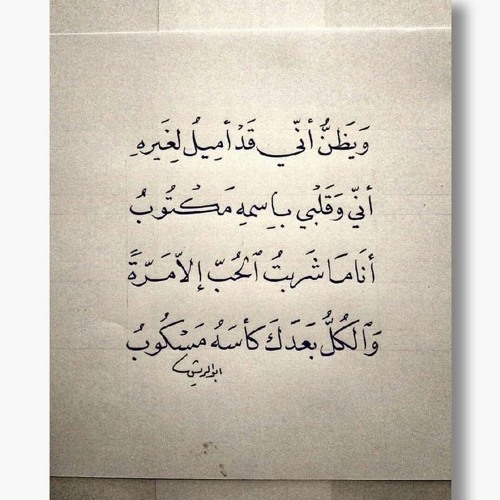 وَيَظَنُّ أنّي قَد أميلُ لِغَيرهِ
أنّي وَقَلبي بِاسمهِ مَكتُوبُ
أنَا مَا شَربتُ الحُبّ إلاّ مَرّةً
وَالكُلُّ بَعدَكَ كأسَهُ مَسْكُوبُ
ابو الريش